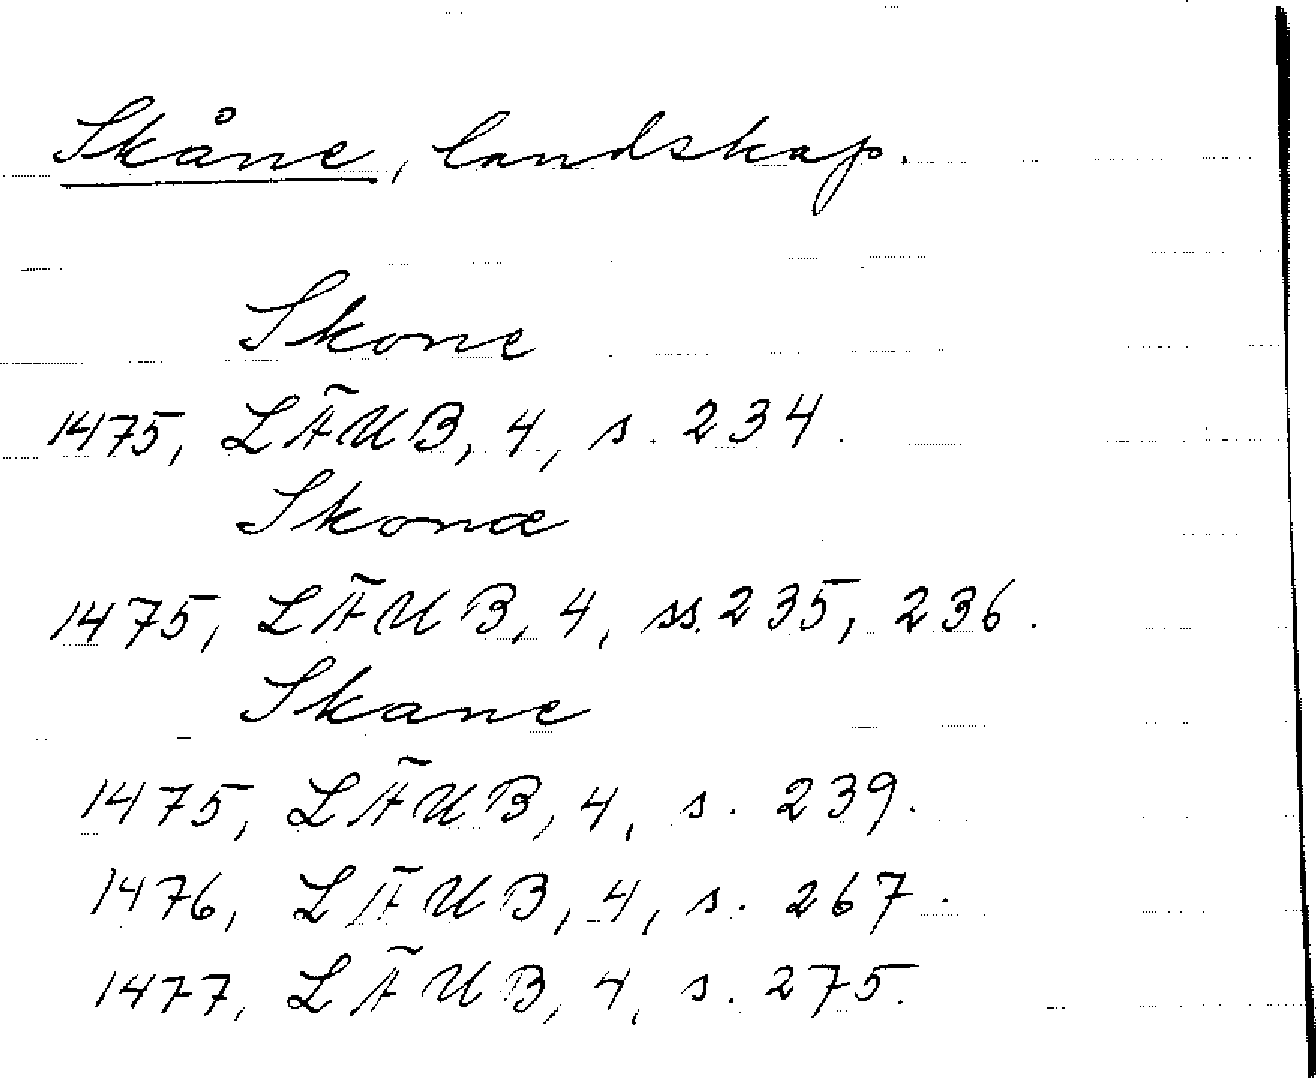 Skåne, landskap.
Skone
1475, LÄUB, 4, s. 234.
Skonæ
1475, LÄUB, 4, ss. 235, 236.
Skane
1475, LÄUB, 4, s. 239.
1476, LÄUB, 4, s. 267.
1477, LÄUB, 4, s. 275.